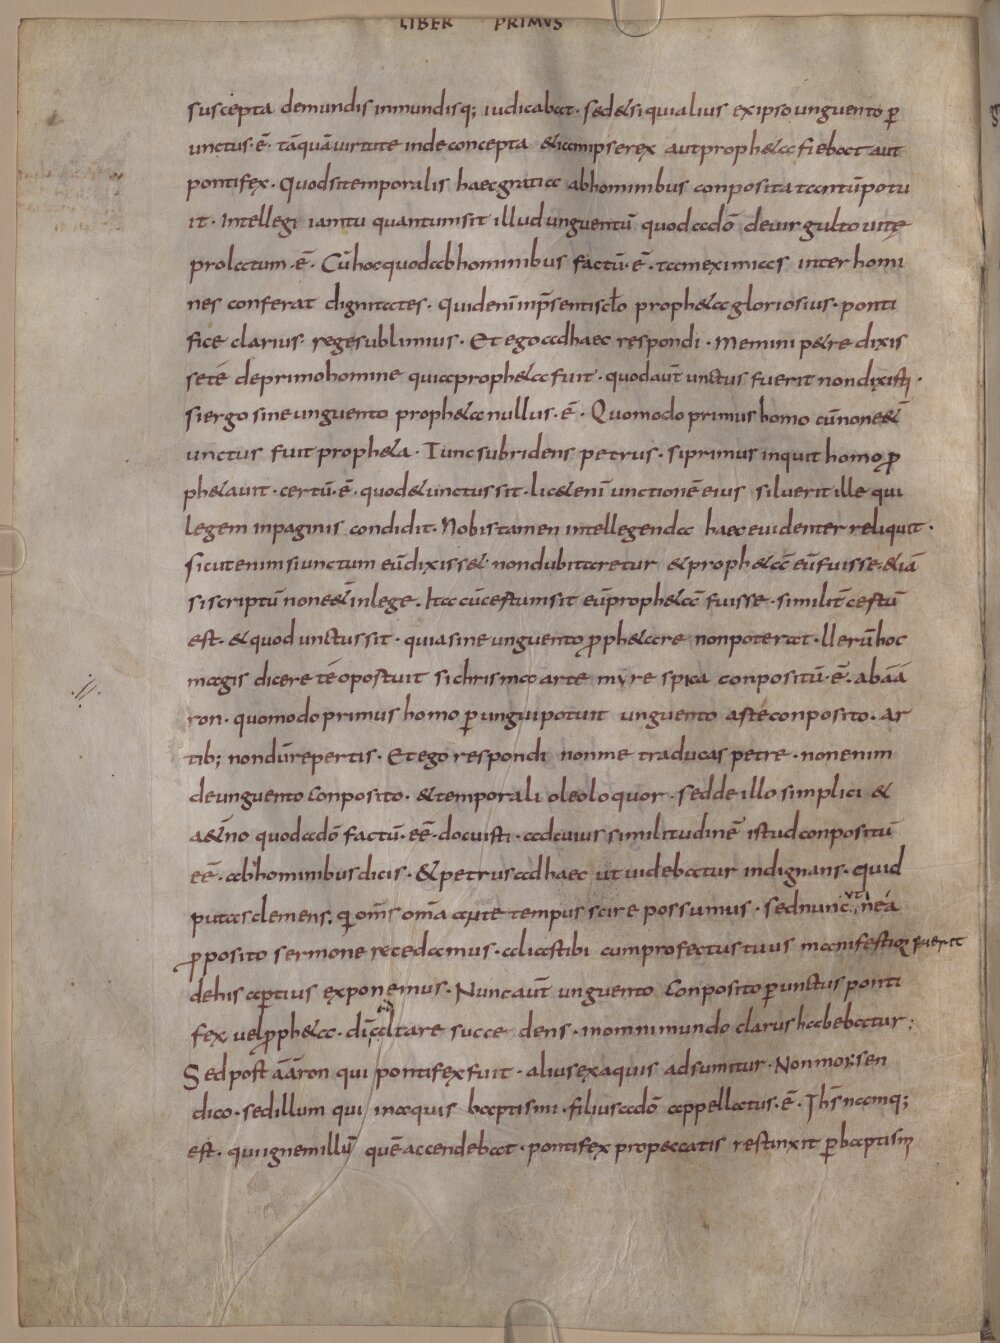 LIBER PRIMVS
suscepta demundis inmundisq; iudicabat. sed&si quialius exipso unguento p̄
unctus·ē· tāquāuirtute inde concepta &iamipserex autproph&a fiebat aut
pontifex. Quodsitemporalis haecgratia abhominibus conposita tantūpotu
it. Intellegi iamtu quantumsit illudunguentū quodadō deuirgulto uitę
prolatum·ē. Cū hocquodabhominibus factū·ē· tameximias inter homi
nes conferat dignitates. Quidenī inp̄sentisc̄lo proph&a gloriosius. ponti
fice clarius. rege sublimius. Et ego adhaec respondi. Memini p&re dixis
sete deprimohomine quiaproph&a fuit. quodaūt unctus fuerit nondixisti.
siergo sine unguento proph&a nullus·ē. Quomodo primus homo cūnonee&̄
unctus fuit proph&a. Tunc subridens petrus. siprimus inquit homo p̄
ph&auit. certū·ē· quod&unctus sit. lic&enī unctionē eius siluerit ille qui
legem inpaginis condidit. Nobis tamen intellegenda haec euidenter reliquit.
sicut enim siunctum eūdixiss&. nondubitaretur &proph&ā eūfuisse. &iā
siscriptū nonee&̄ inlege. Ita cūcestumsit eūproph&ā fuisse. similit̄ cestū
est. &quod unctus sit. quiasine unguento p̄ph&are nonpoterat. Uerūhoc
magis dicere té opostuit sichrisma arte myre spica conpositū·ē. abaā
ron. quomodo primus homo p̄unguipotuit unguento asteconposito. Ar
tib; nondū repertis. Et ego respondi nonme traducas petre. nonenim
deunguento conposito. &temporali oleoloquor. sedde illo simplici &
a&̄no quodadō factū·eē. docuisti. adcuius similitudinē istud conpositū
eē. abhominibus dicis. &petrus adhaec ut uidebatur indignans. quid
putas clemens. q̄ om̄s om̄a ante tempus scire possumus. sednunc uti neá
p̄posito sermone recedamus. aliastibi cumprofectus tuus manifestior fuerit
dehis apertius exponemus. Nuncaūt unguento conposito p̄unctus ponti
fex uelp̄ph&a. dic̄altare succe dens. inomni mundo clarus habebatur;
Sed post aāron qui pontifex fuit. alius exaquis adsumitur. Non morsen
dico. sedillum qui inaquis baptismi. filiusadō appellatus·ē. Ihs̄ namq;
est. quiignemillū quē accendebat. pontifex propeccatis restinxit p̄baptism